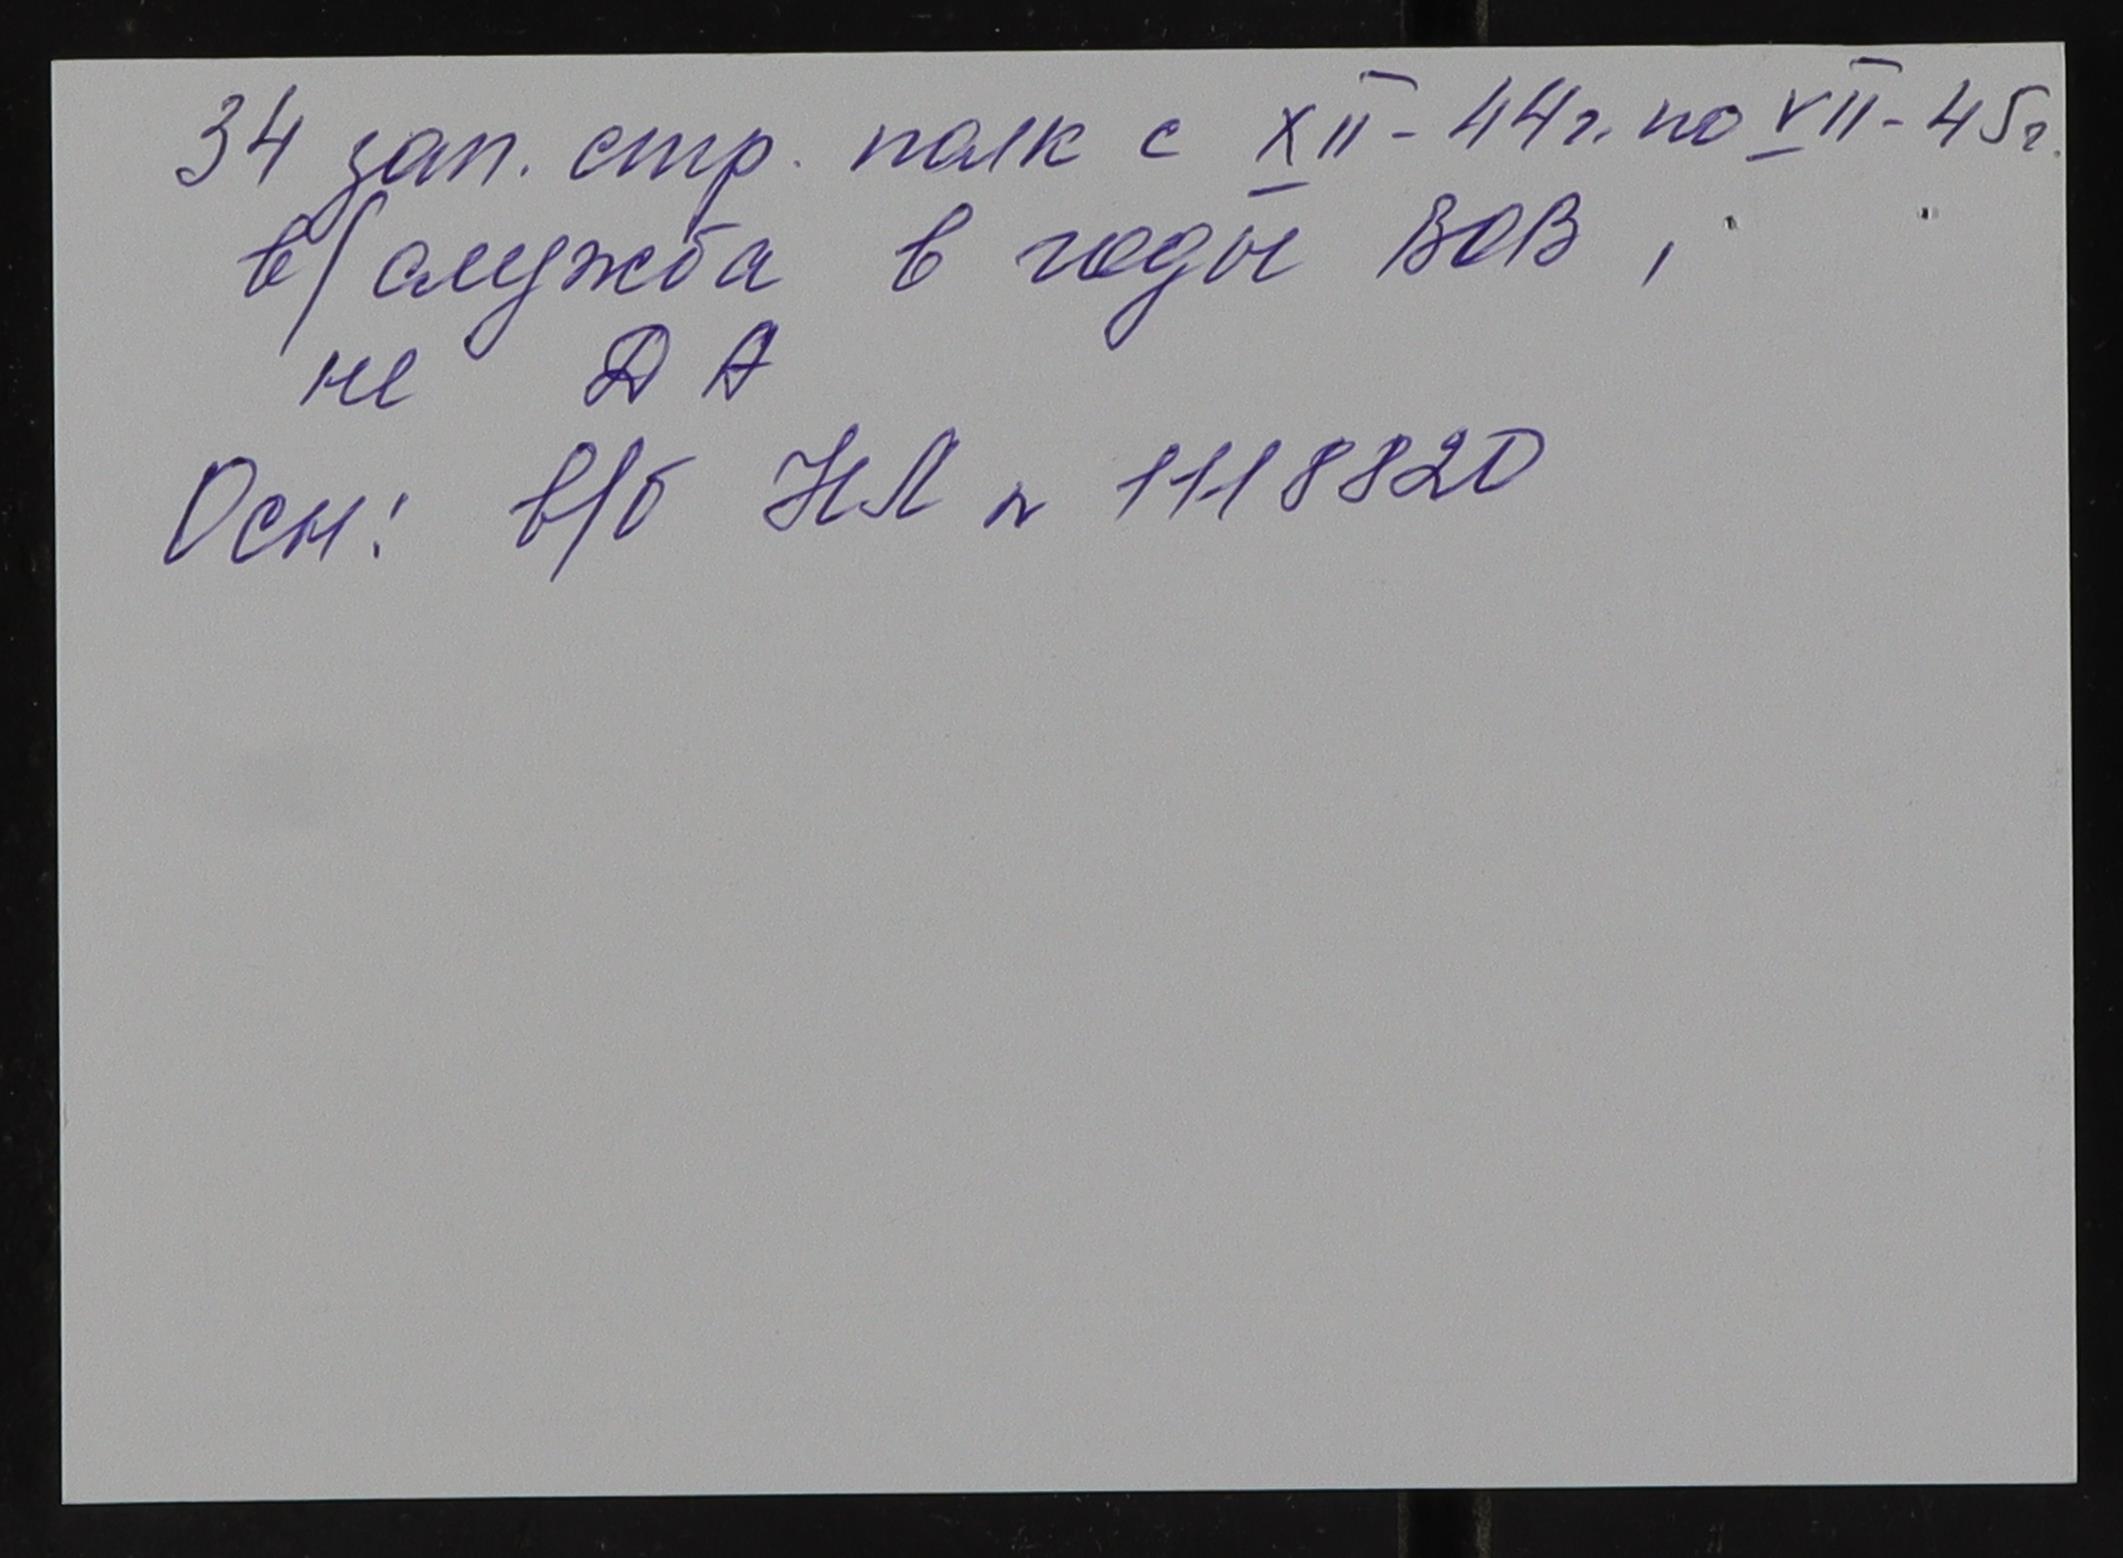 34 зап. стр. полк с XII-44г. по VII-45г.
в/служба в годы ВОВ,
не ДА
Осн: в/б НЛ № 1118820